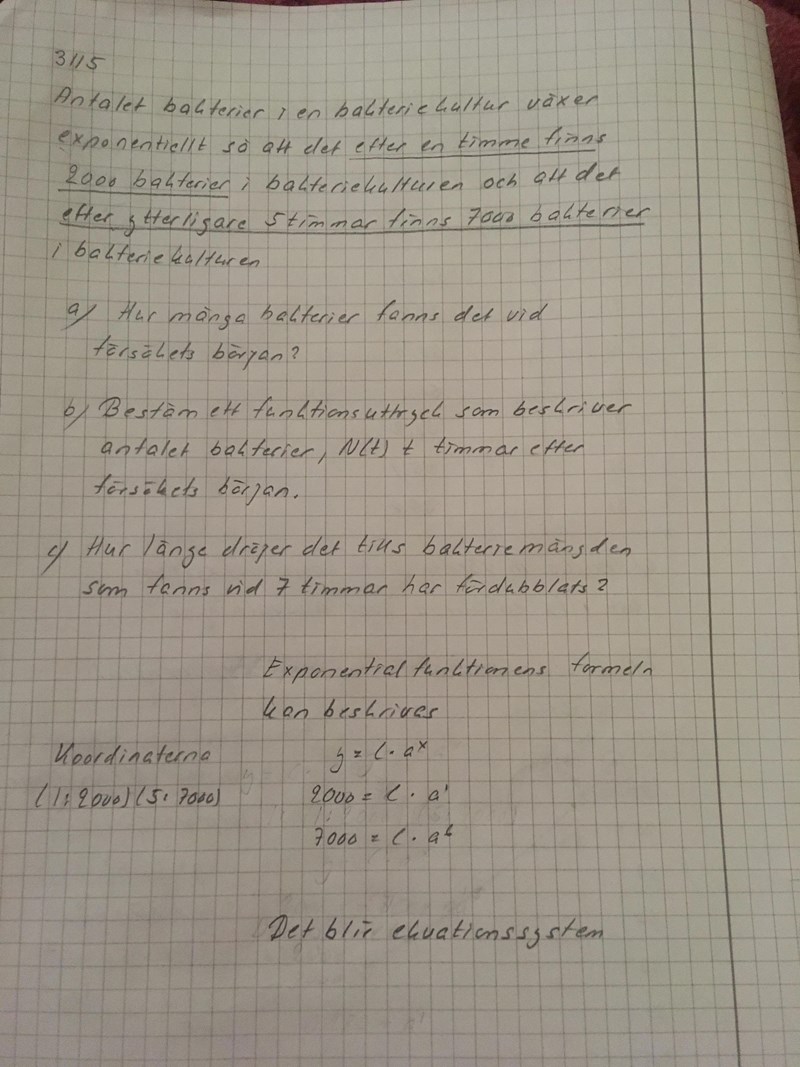 3115
Antalet bakterier i en bakteriekultur växer
exponentiellt så att det efter en timme finns
2000 bakterier i bakteriekulturen och att det
efter ytterligare 5 timmar finns 7000 bakterier
i bakteriekulturen
a) Hur många bakterier fanns det vid
försökets början?
b) Bestäm ett funktionsuttryck som beskriver
antalet bakterier, N(t) t timmar efter
försökets början.
c) Hur länge dröjer det tills bakteriemängden
som fanns vid 7 timmar har fördubblats?
Exponentialfunktionens formeln
kan beskrivas
Koordinaterna
y = C · aˣ
(1; 2000) (5; 7000)
2000 = C · a¹
7000 = C · a⁶
Det blir ekvationssystem